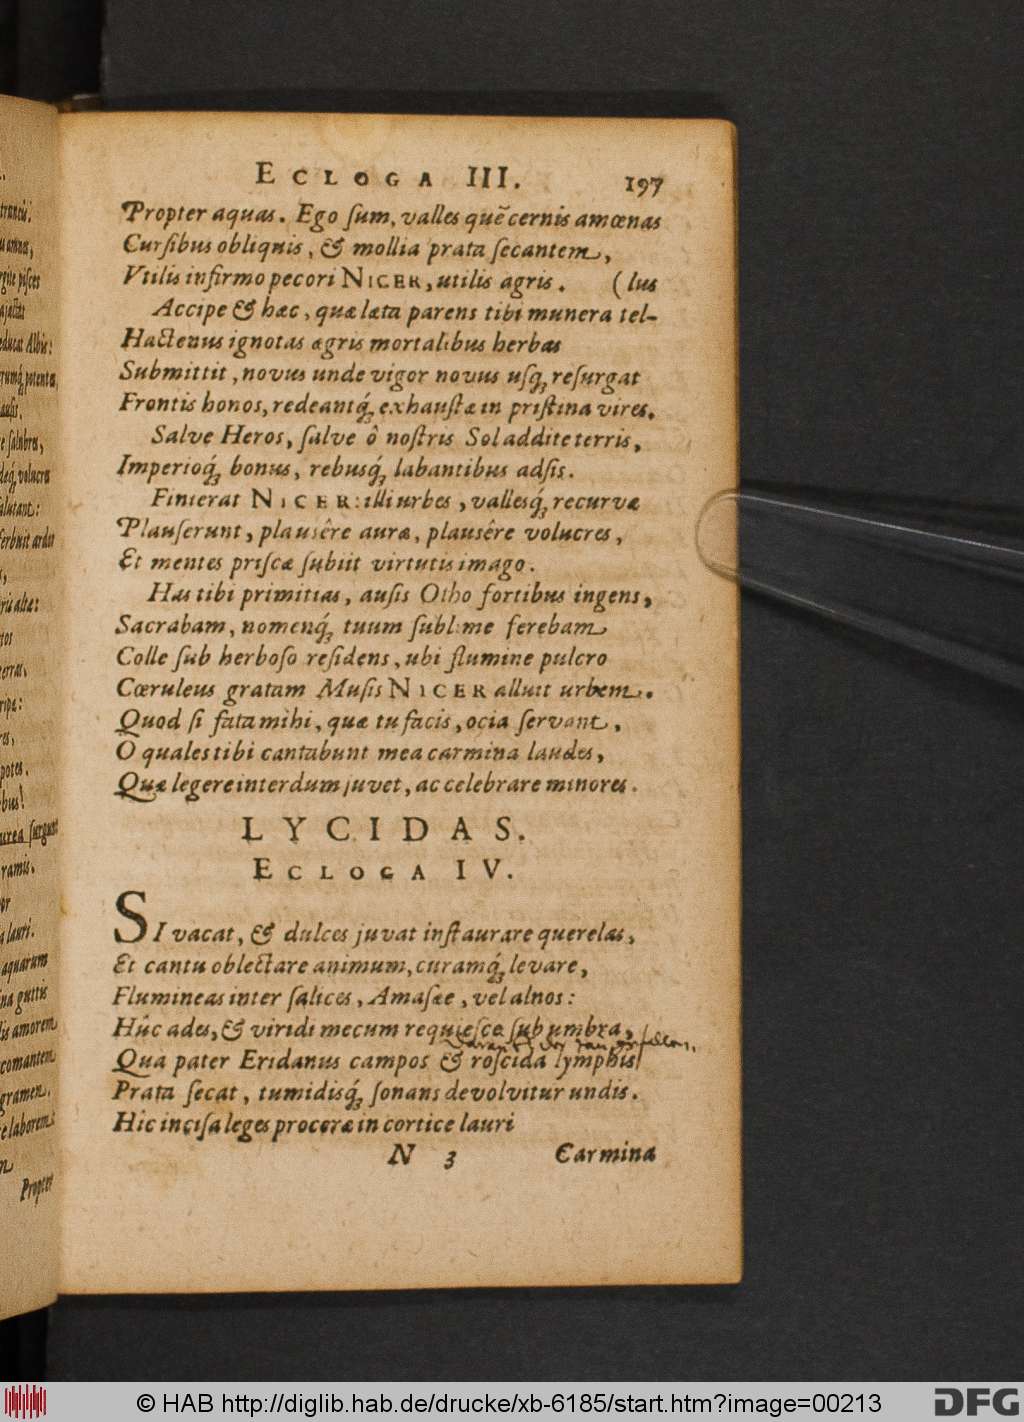 ECLOGA III. 197
Propter aquas. Ego sum, valles quẽ cernis amœnas
Cursibus obliquis, & mollia prata secantem,
Vtilis infirmo pecori NICER, utilis agris. (lus
Accipe & hæc, quæ læta parens tibi munera tel-
Hactenus ignotas ægris mortalibus herbas
Submittit, novus unde vigor novus usq́; resurgat
Frontis honos, redeantq́; exhaustæ in pristina vires.
Salve Heros, salve ô nostris Sol addite terris,
Imperioq́; bonus, rebusq́; labantibus adsis.
Finierat NICER: illi urbes, vallesq́; recurvæ
Plauserunt, plausêre auræ, plausêre volucres,
Et mentes priscæ subiit virtutis imago.
Has tibi primitias, ausis Otho fortibus ingens,
Sacrabam, nomenq́; tuum sublime ferebam
Colle sub herboso residens, ubi flumine pulcro
Cœruleus gratam Musis NICER alluit urbem.
Quod si fata mihi, quæ tu facis, ocia servant,
O quales tibi cantabunt mea carmina laudes,
Quæ legere interdum juvet, ac celebrare minores.
LYCIDAS.
ECLOGA IV.
SI vacat, & dulces juvat instaurare querelas,
Et cantu oblectare animum, curamq́; levare,
Flumineas inter salices, Amasæe, vel alnos:
Hûc ades, & viridi mecum requiesce sub umbra,
Qua pater Eridanus campos & roscida lymphis
Prata secat, tumidisq́; sonans devolvitur undis.
Hic incisa leges proceræ in cortice lauri
N 3 Carmina
trancũ.
amnes,
pisces
educat Albis:
potentes,
ausis.
salubres,
volucres
salutant:
ferbuit ardor
alta:
terras,
ripa:
potes.
surgunt
ramis.
lauri.
aquarum
guttis
amorem
comantem
gramen.
laborem
Propter
© HAB http://diglib.hab.de/drucke/xb-6185/start.htm?image=00213
DFG